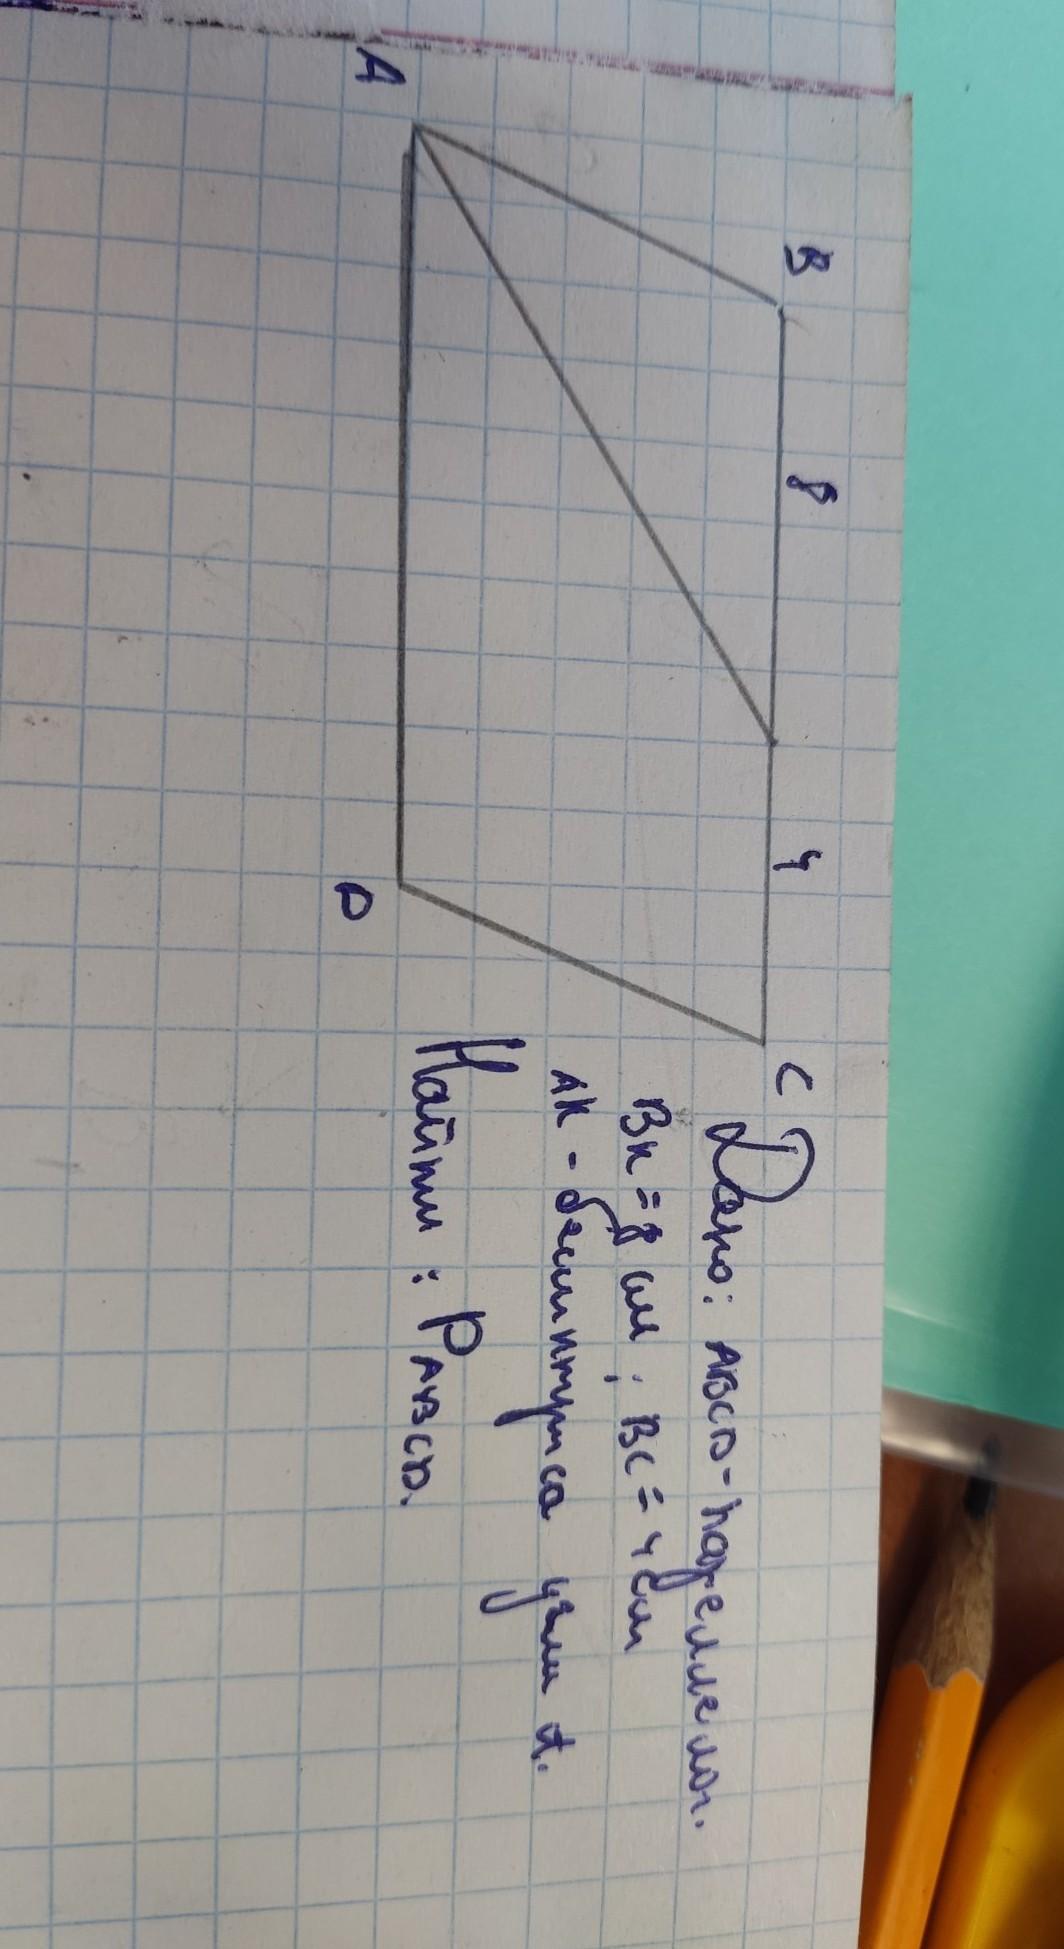 B 8 4 C
A D
Дано: ABCD-параллелог.
BK=8 см; BC=4см
AK-биссиктриса угла A.
Найти: PABCD.